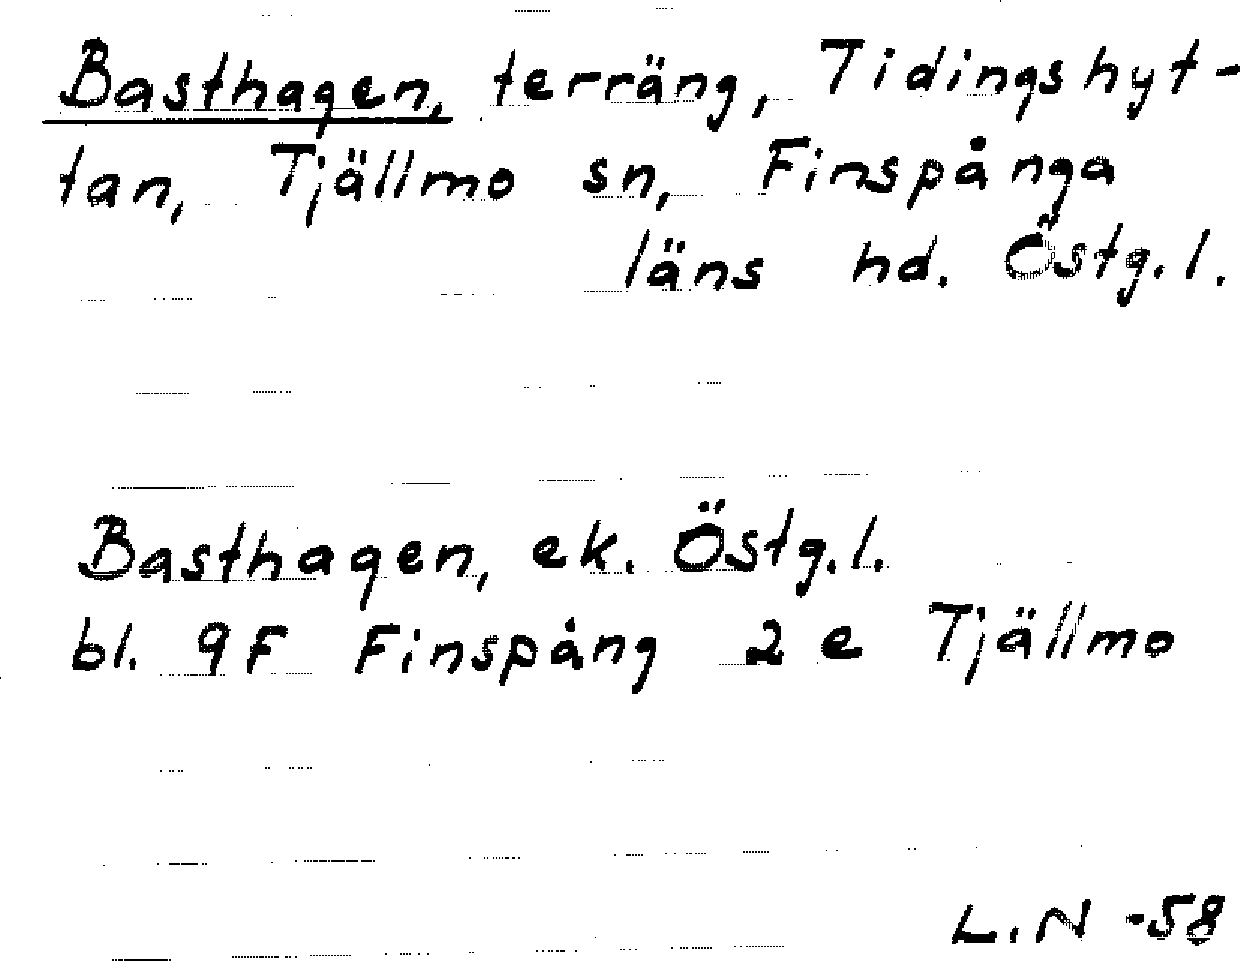 Basthagen, terräng, Tidingshyt-
tan, Tjällmo sn, Finspånga
läns hd. Östg.l.
Basthagen, ek. Östg.l.
bl. 9F Finspång 2e Tjällmo
L.N -58